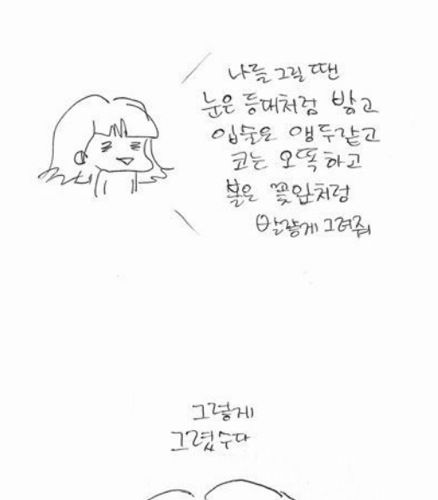 나를 그릴 땐
눈은 등대처럼 밝고
입술은 앵두같고
코는 오똑하고
볼은 꽃잎처럼
발랗게 그려줘
그렇게
그렸수다